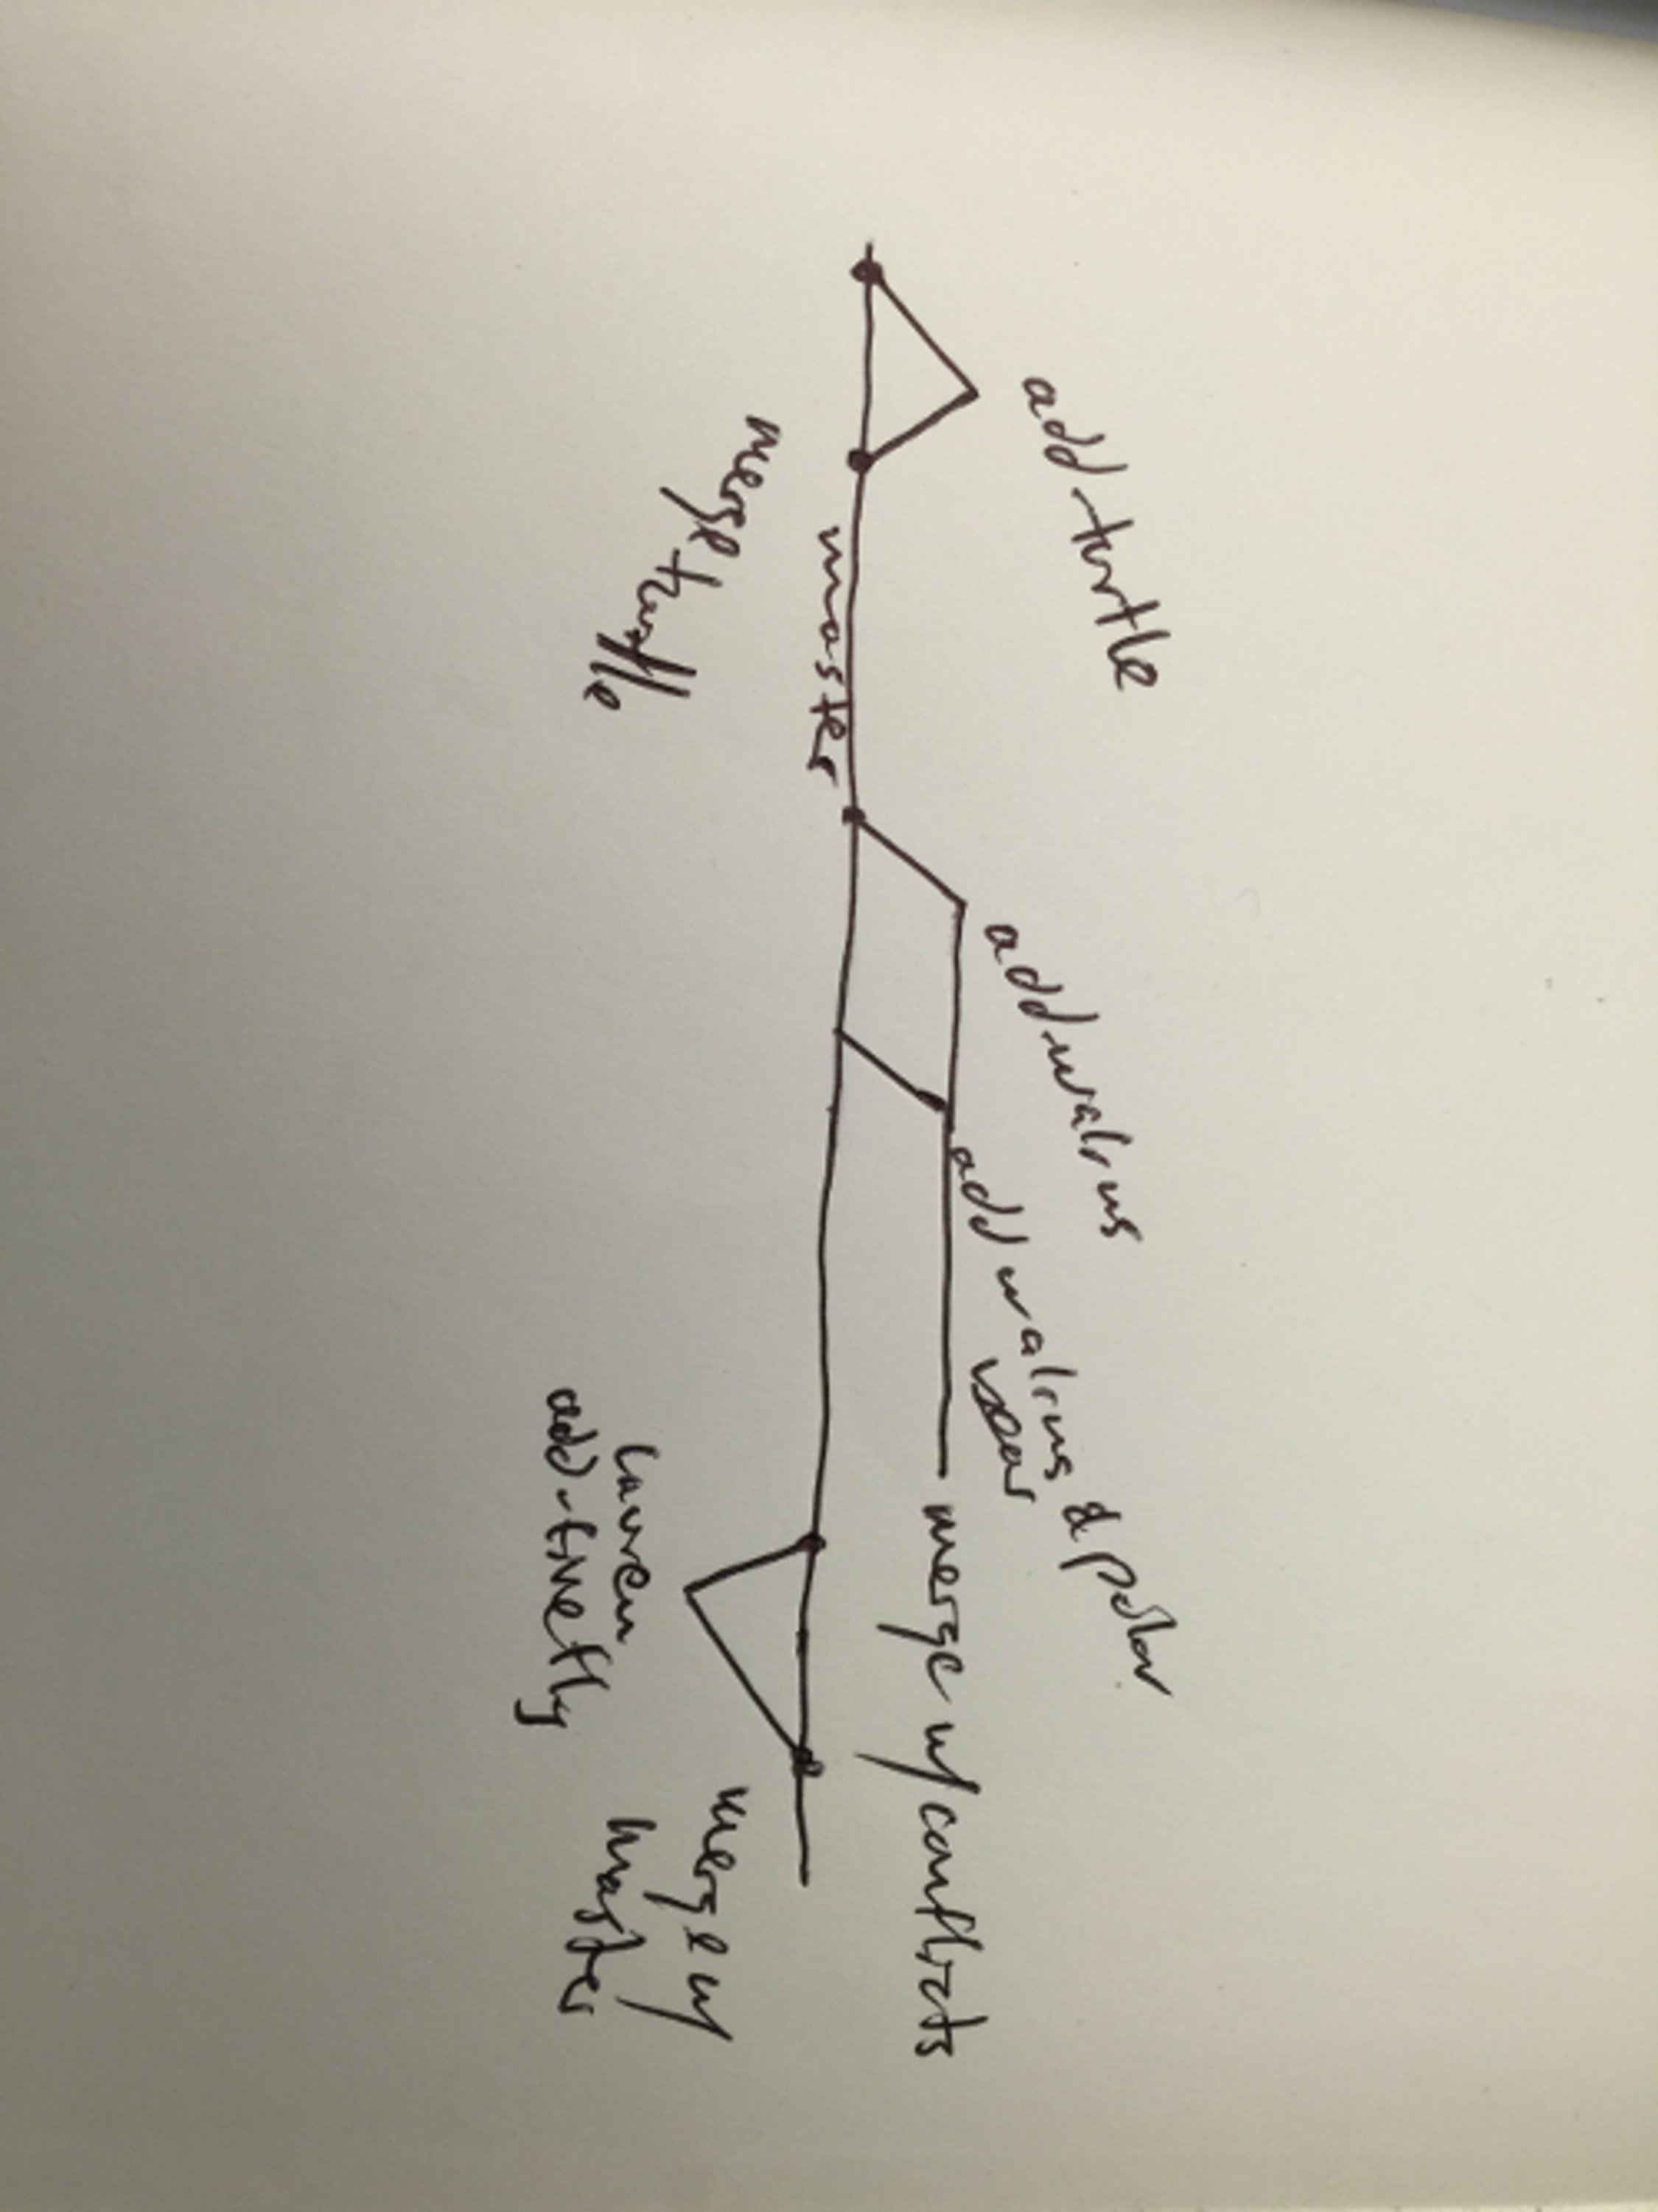 add-turtle
merge turtle
master
add-walrus
add walrus & polar
bear
merge w/ conflicts
lauren
add-firefly
merge w/
master